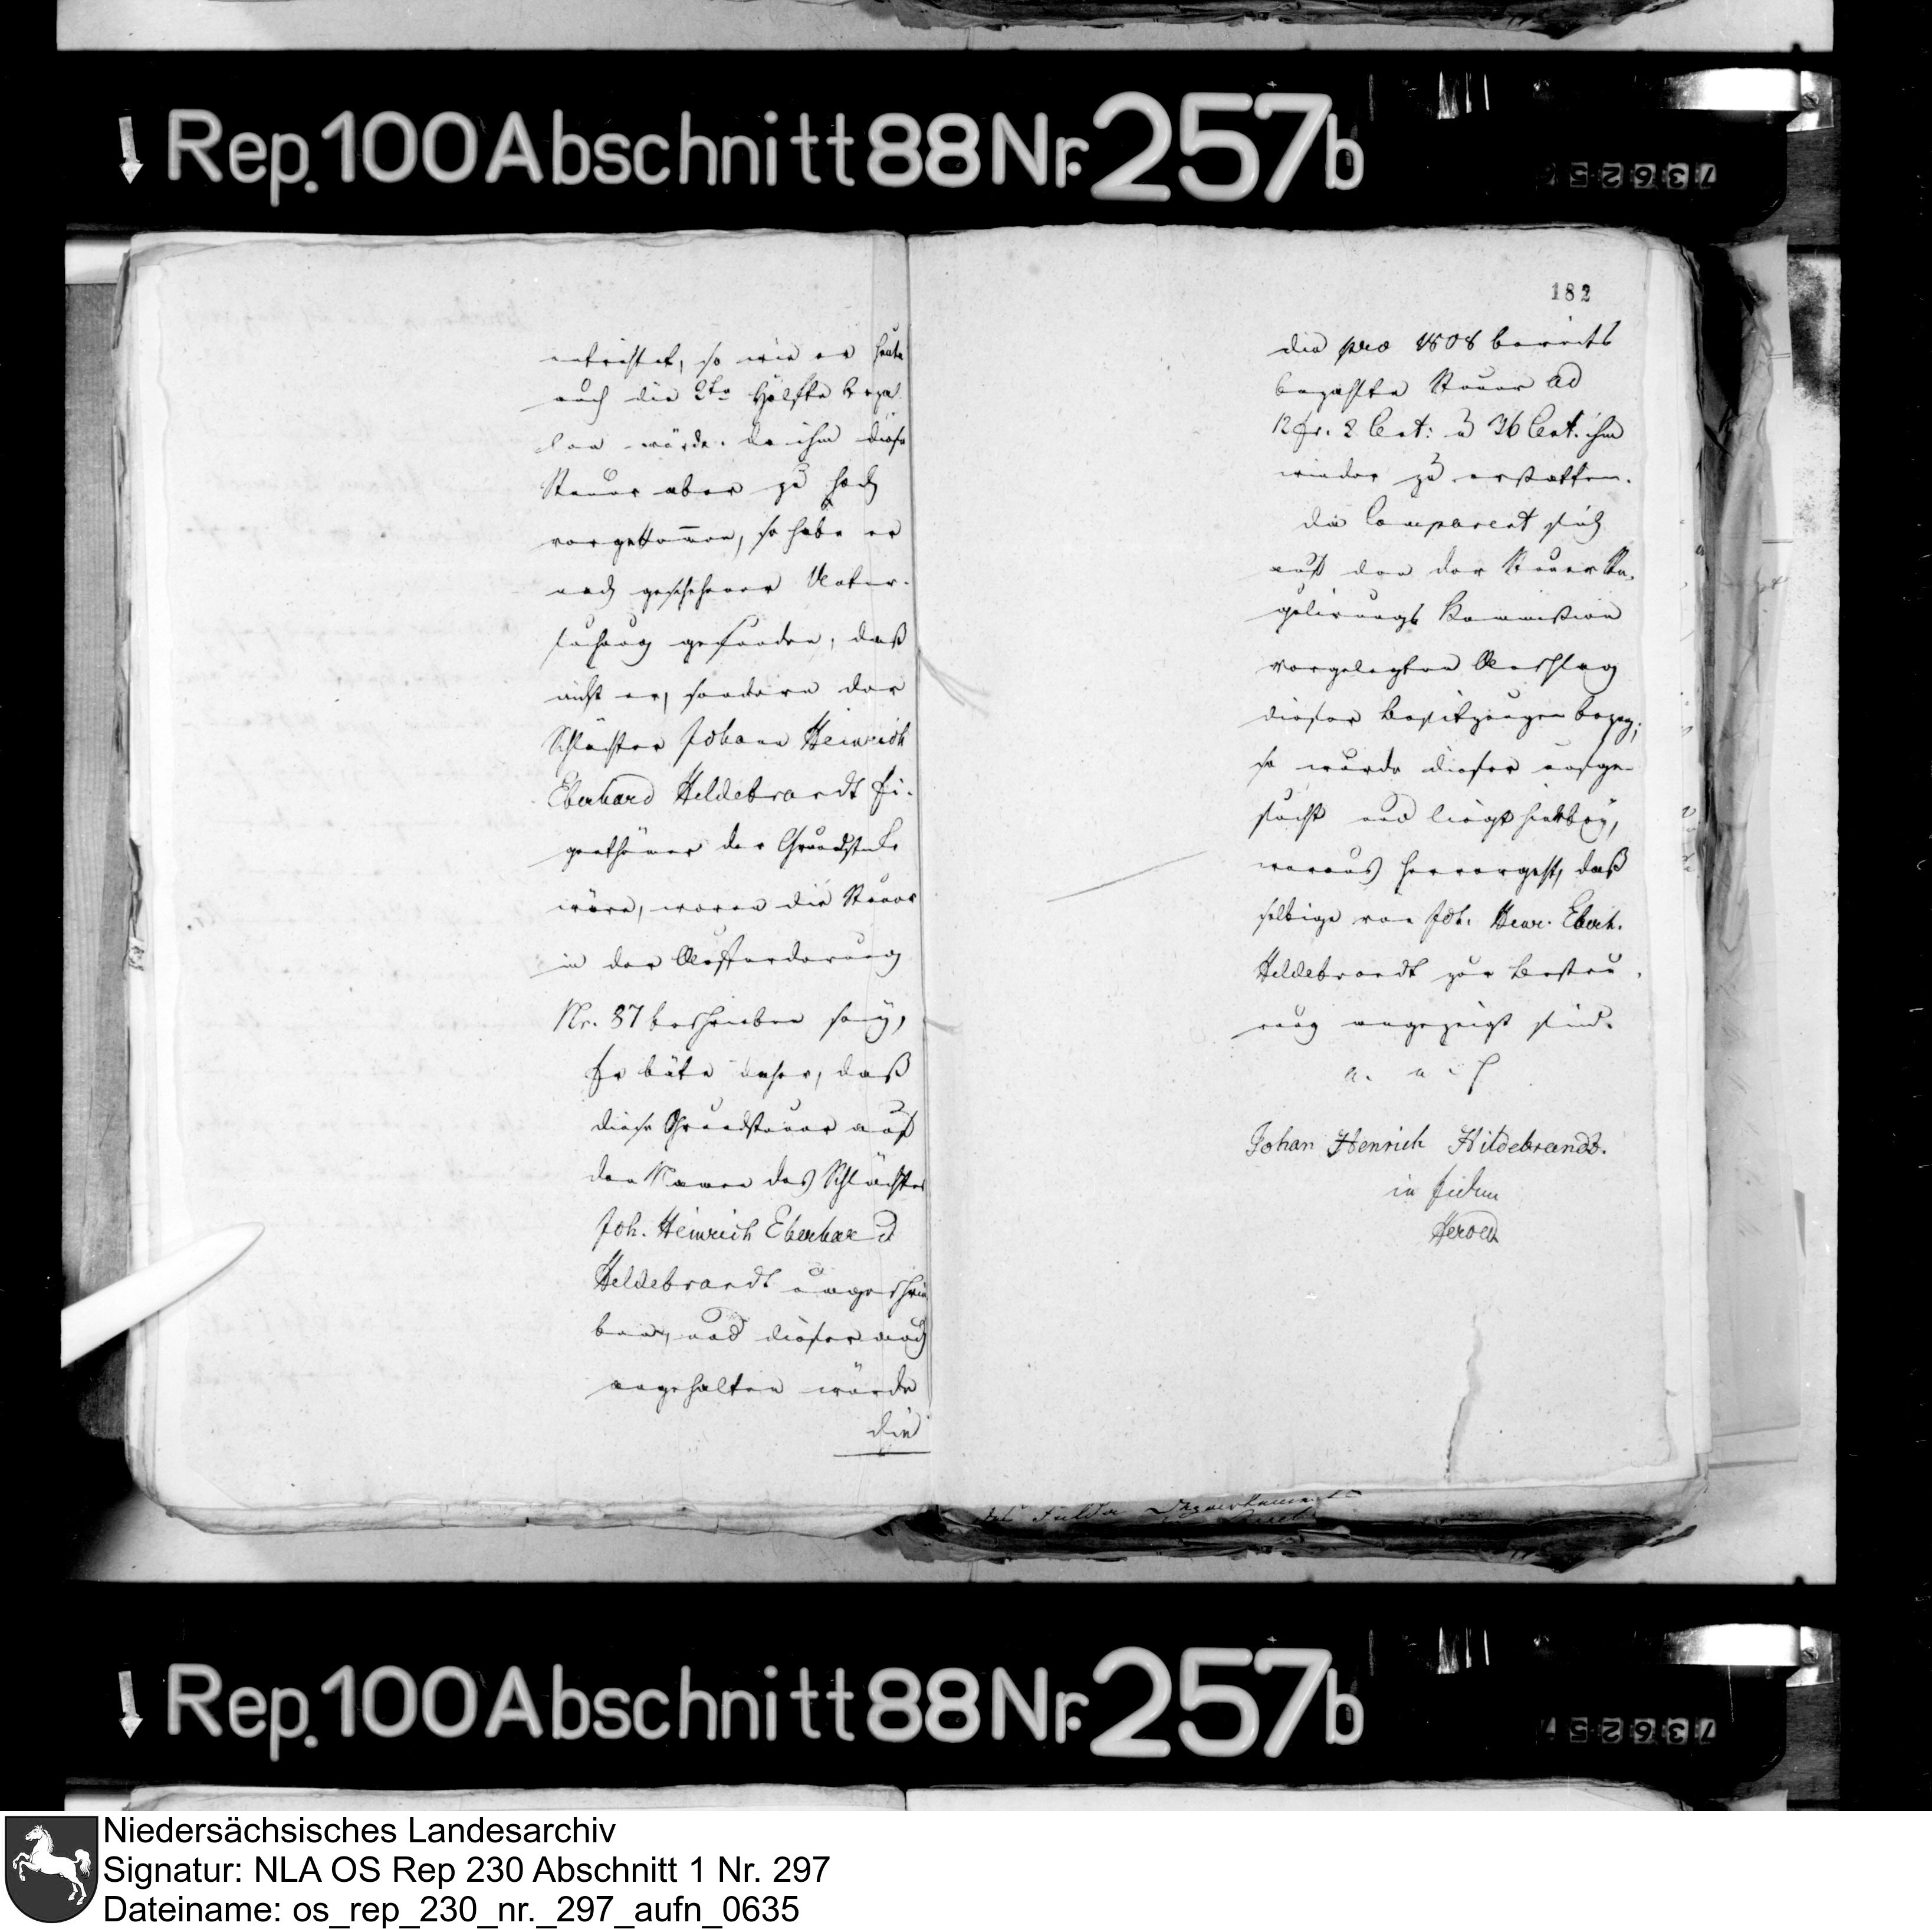 Rep. 100 Abschnitt 88 Nr. 257b
entrichtet, so wie er heute
auch die 2te Hälfte bezah
len würde. da ihm diese
Steuer aber zu hoch
vorgekommen, so habe er
nach geschehener Unter-
suchung gefunden, daß
nicht er, sondern der
Schlächter Johann Heinrich
Eberhard Heldebrandt Ei-
genthümer der Grundstücke
wäre, wovon die Steuer
in der Aufforderung
Nr. 87 beschrieben sey,
Er bäte daher, daß
diese Grundsteuer auf
den Namen des Schlächters
Joh. Heinrich Eberhard
Heldebrandt umgeschrie
ben, und dieser auch
angehalten würde
die
182
die pro 1808 bereits
bezahlte Steuer ad
12 fr. 2 Cent: u 36 Cent. ihm
wieder zu erstatten.
Da Comparent sich
auf den der Steuer Re-
gulirungs Kommission
vorgelegten Anschlag
dieser Besitzungen bezog;
so wurde dieser aufge-
sucht und liegt hierbey,
woraus hervorgeht, daß
selbige von Joh. Henr. Eberh.
Heldebrandt zur Besteu-
rung angezeigt sind.
Johan Henrich Hildebrandt.
in fidem
Herold
Rep. 100 Abschnitt 88 Nr. 257b
Niedersächsisches Landesarchiv
Signatur: NLA OS Rep 230 Abschnitt 1 Nr. 297
Dateiname: os_rep_230_nr._297_aufn_0635